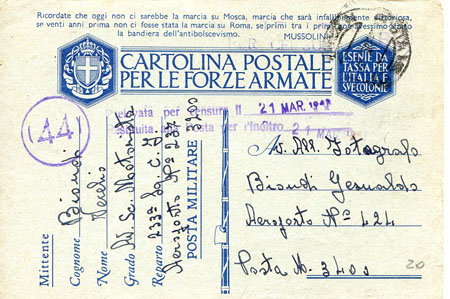 Ricordate che oggi non ci sarebbe la marcia su Mosca, marcia che sarà infallibilmente vittoriosa,
se venti anni prima non ci fosse stata la marcia su Roma, se primi tra i primi non avessimo alzato
la bandiera dell'antibolscevismo. MUSSOLINI
CARTOLINA POSTALE
PER LE FORZE ARMATE
ESENTE DA
TASSA PER
L'ITALIA E
SUE COLONIE
per censura il 21 MAR. 194
per l'inoltro 21 MAR
44
Mittente
Cognome Biondi
Nome
Grado Av. Sc. Motorista
Reparto 233a
Aeroporto No 237
POSTA MILITARE 3400
Av. All. Fotografo
Biondi Gesualdo
Aeroporto No 424
Posta M. 3400
20